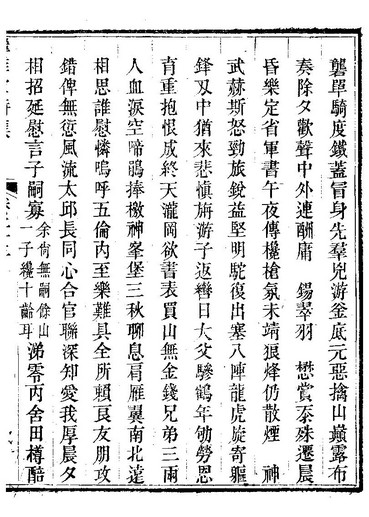 礱單騎度鐵蓋冒身先羣兇游釡底元惡擒山巔露布
奏除夕歡聲中外連酬庸　錫翠羽　懋賞忝殊遷晨
昏樂定省軍書午夜傳欃槍氛未靖狼烽仍散煙　神
武赫斯怒勁旅銳益堅明駝復出塞八陣龍虎旋寄軀
鋒刃中猶來悲愼旃游子返轡日大父驂鶴年劬勞恩
育重抱恨成終天瀧岡欲書表買山無金錢兄弟三兩
人血淚空啼鵑捧檄神峯堡三秋聊息肩雁翼南北遠
相思誰慰憐嗚呼五倫内至樂難具全所賴良友朋攻
錯俾無愆風流太邱長同心合官聯深知愛我厚晨夕
相招延慰言子嗣寡余尙無嗣條山一子纔十齡耳涕零丙舍田樽酷